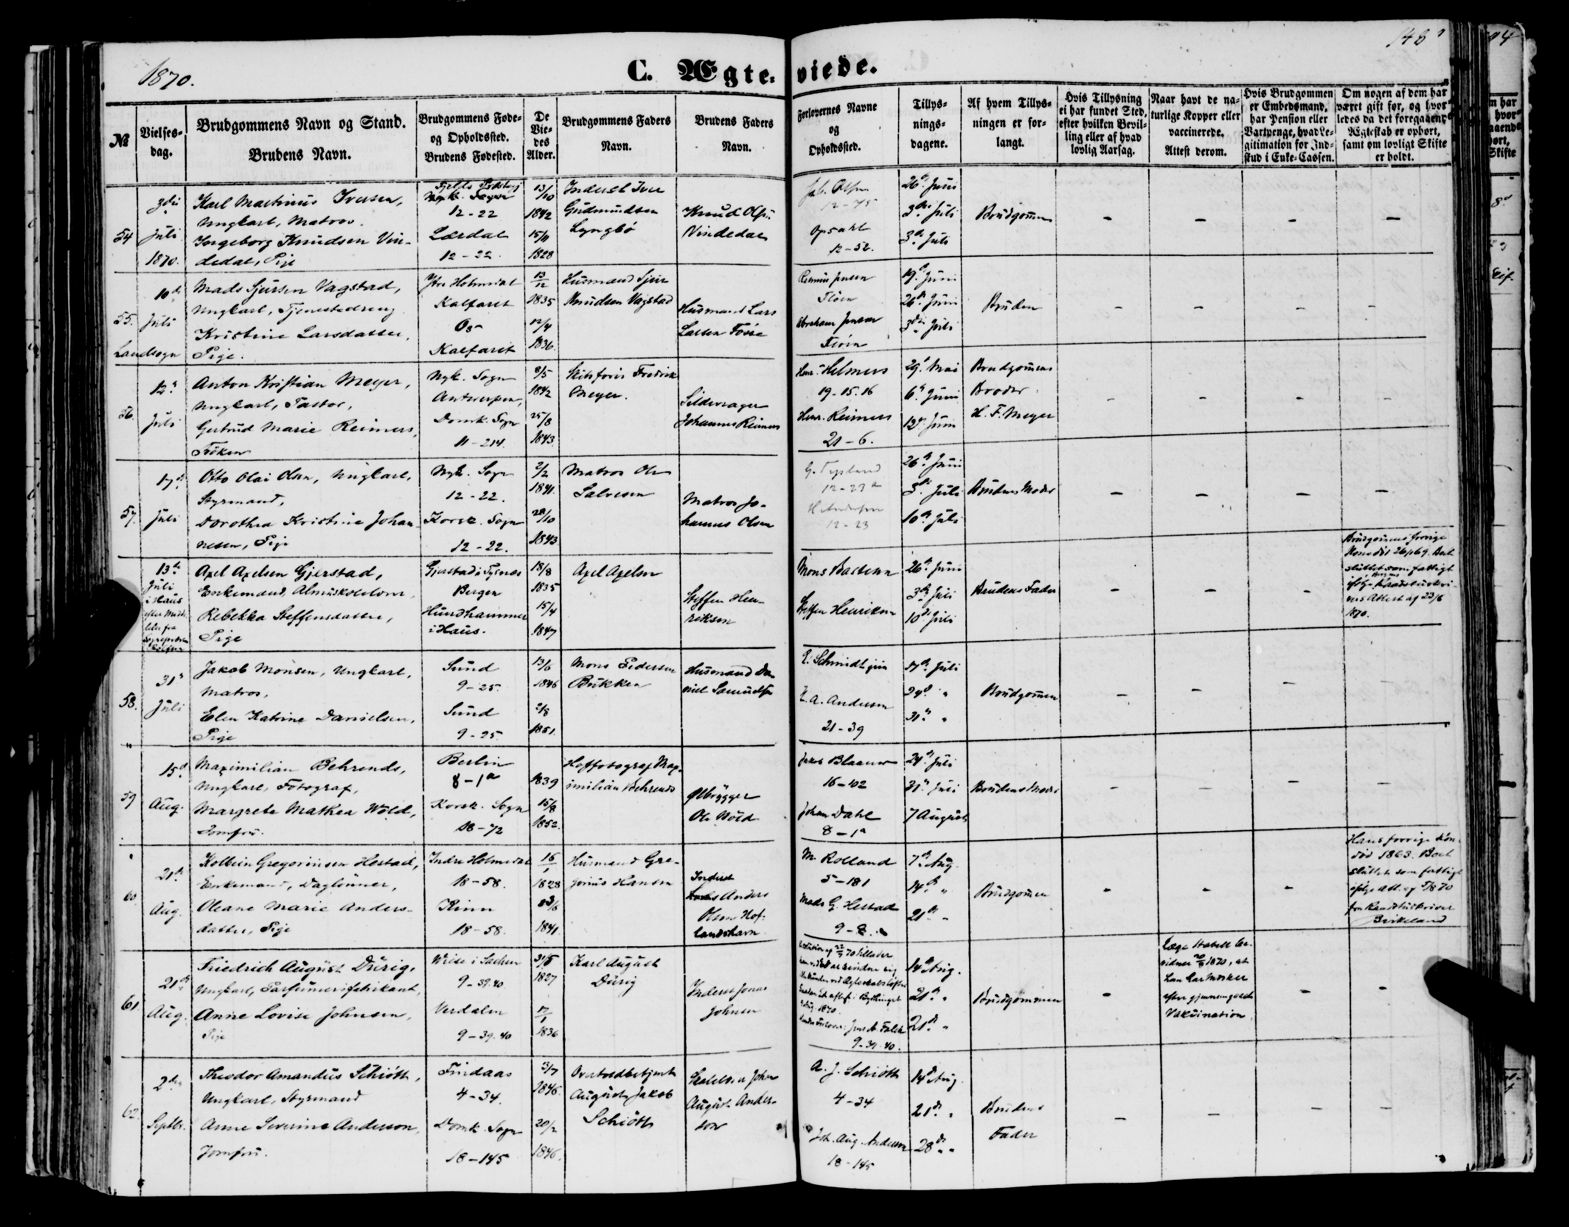 1870.
C. Ægte- viede.
148
№
Vielses-
dag.
Brudgommens Navn og Stand.
Brudens Navn.
Brudgommens Føde-
og Opholdssted.
Brudens Fødested.
De
Vie-
des
Alder.
Brudgommens Faders
Navn.
Brudens Faders
Navn.
Forlovernes Navne
og
Opholdssted.
Tillys-
nings-
dagene.
Af hvem Tillys-
ningen er for-
langt.
Hvis Tillysning
ei har fundet Sted,
efter hvilken Bevil-
ling eller af hvad
lovlig Aarsag.
Naar havt de na-
turlige Kopper eller
vaccinerede.
Attest derom.
Hvis Brudgommen
er Embedsmand,
har Pension eller
Vartpenge, hvad Le-
gitimation for Ind-
skud i Enke-Cassen.
Om nogen af dem har
været gift før, og hvor-
ledes da det foregaaende
Ægteskab er ophørt,
samt om lovligt Skifte
er holdt.
54
3die
Juli
1870.
Karl Martinus Iversen,
Ungkarl, Matros.
Ingeborg Knudsen Vin-
dedal, Pige
Nyk. Sogn
12-22
Lærdal
12-22
13/10
1842
15/11
1828
Inderst Iver
Gudmundsen
Lyngbø
Knud Olsen
Vindedal
Jak. Olsen
12-45
Opsahl
12-52
26 Juni
3die Juli
3die Juli
Brudgommen
55.
10de
Juli
Landsogn
Mads Sjursen Vagstad,
Ungkarl, Tjenestedreng
Kristine Larsdatter,
Pige.
Ytre Holmedal
Kalfaret
Os
Kalfaret
13/12
1835
12/4
1836
Husmand Sjur
Knudsen Vagstad
Husmand Lars
Larsen Fosse
Rasmus Jensen
Fløen
Abraham Jensen
Fløen
19de Juni
26de Juni
3die Juli
Bruden
56.
12te
Juli
Anton Kristian Meyer,
Ungkarl, Pastor,
Gertrud Marie Reimers,
Frøken
Nyk. Sogn
Antwerpen,
Domk. Sogn
11-214
8/5
1842
25/8
1843
Skibsfører Fredrik
Meyer.
Sildevrager
Johannes Reimers
Henr. Helmers
19-15.16
Henr. Reimers
21-6.
29. Mai
6te Juni
12te Juni
Brudgommens
Broder
H. F. Meyer
57.
17de
Juli
Otto Olai Olsen, Ungkarl,
Styrmand,
Dorothea Kristine Johan-
nesen, Pige
Nyk. Sogn
12-22.
Korsk. Sogn
12-22.
2/2
1841
28/10
1843
Matros Ole
Salvesen
Matros Jo-
hannes Olsen
12-23
26de Juni
3die Juli
10de Juli
Brudens Moder
13de
Juli
i Haus
Axel Axelsen Gjerstad,
Enkemand, Almueskolelærer,
Rebekka Steffensdatter,
Pige
Bergen
Hundhammer
i Haus.
18/8
1835
15/4
1847
Axel Axelsen
Steffen Hen-
riksen
Mons Barbersen
Steffen Henriksen
26de Juni
3die Juli
10de Juli
Brudens Fader
Brudgommens forrige
Kone død
sluttet som fattigt
1870.
58.
31te
Juli
Jakob Monsen, Ungkarl,
Matros,
Elen Katrine Danielsen,
Pige
Sund
9-25.
Sund
9-25
13/6
1846
2/8
1851.
Mons Pedersen
Bukken
Husmand Da-
niel Samuelsen
E. Schmidt jun
A. Andersen
21-39
17de Juli
24de "
31te "
Brudgommen
59
15de
Aug.
Maximilian Behrends,
Ungkarl, Fotograf,
Margrete Mathea Wold,
Jomfru.
Berlin
8-1a
Korsk. Sogn
18-72
1839
15/8
1852.
Hoffotograf Max-
imilian Behrends
Ølbrygger
Ole Wold
Jakob Blaauw
16-42
Johan Dahl
8-1a
24de Juli
31te Juli
7 August
Brudens Moder
60
21de
Aug.
Kolbein Gregoriussen Hestad,
Enkemand, Daglønner,
Oleane Marie Anders-
datter, Pige
Indre Holmedal
18-58.
Kinn
18-58.
16/1
1828
1841
Husmand Gre-
gorius Hansen
Inderst
Anders
Olsen Hof-
landshavn
M. Rolland
5-181
Mads G. Hestad
9-8.
7de Aug.
14de "
21de "
Brudgommen
Hans forrige Kone
død 1863. Boet
sluttet som fattigt
Birkeland
61.
21de
Aug.
Friedrich August Dürig,
Ungkarl, Parfumerifabrikant,
Anne Lovise Johnsen,
Pige
Weise i Sachsen
9-39.40
Verdalen
9-39.40
1827
1836
Karl August
Dürig
Inderst Jonas
Johnsen
9-39.40.
14de Aug.
21de "
21de "
Brudgommen
1870, at
Vakcination.
62.
2den
Septbr.
Theodor Amandus Schiøth,
Ungkarl, Styrmand
Anne Severine Anderson,
Jomfru.
Findaas
4-34.
Domk. Sogn
18-145
13/7
1846
20/2
1846.
August Jakob
Schiøth
Johan
August Ander-
son
A. J. Schiøth
4-34
Joh. Aug. Anderson
18-145
14de Aug.
21de "
28de "
Brudens
Fader